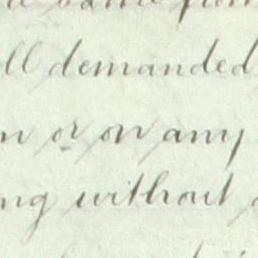 ll demanded
n or on any
ng without